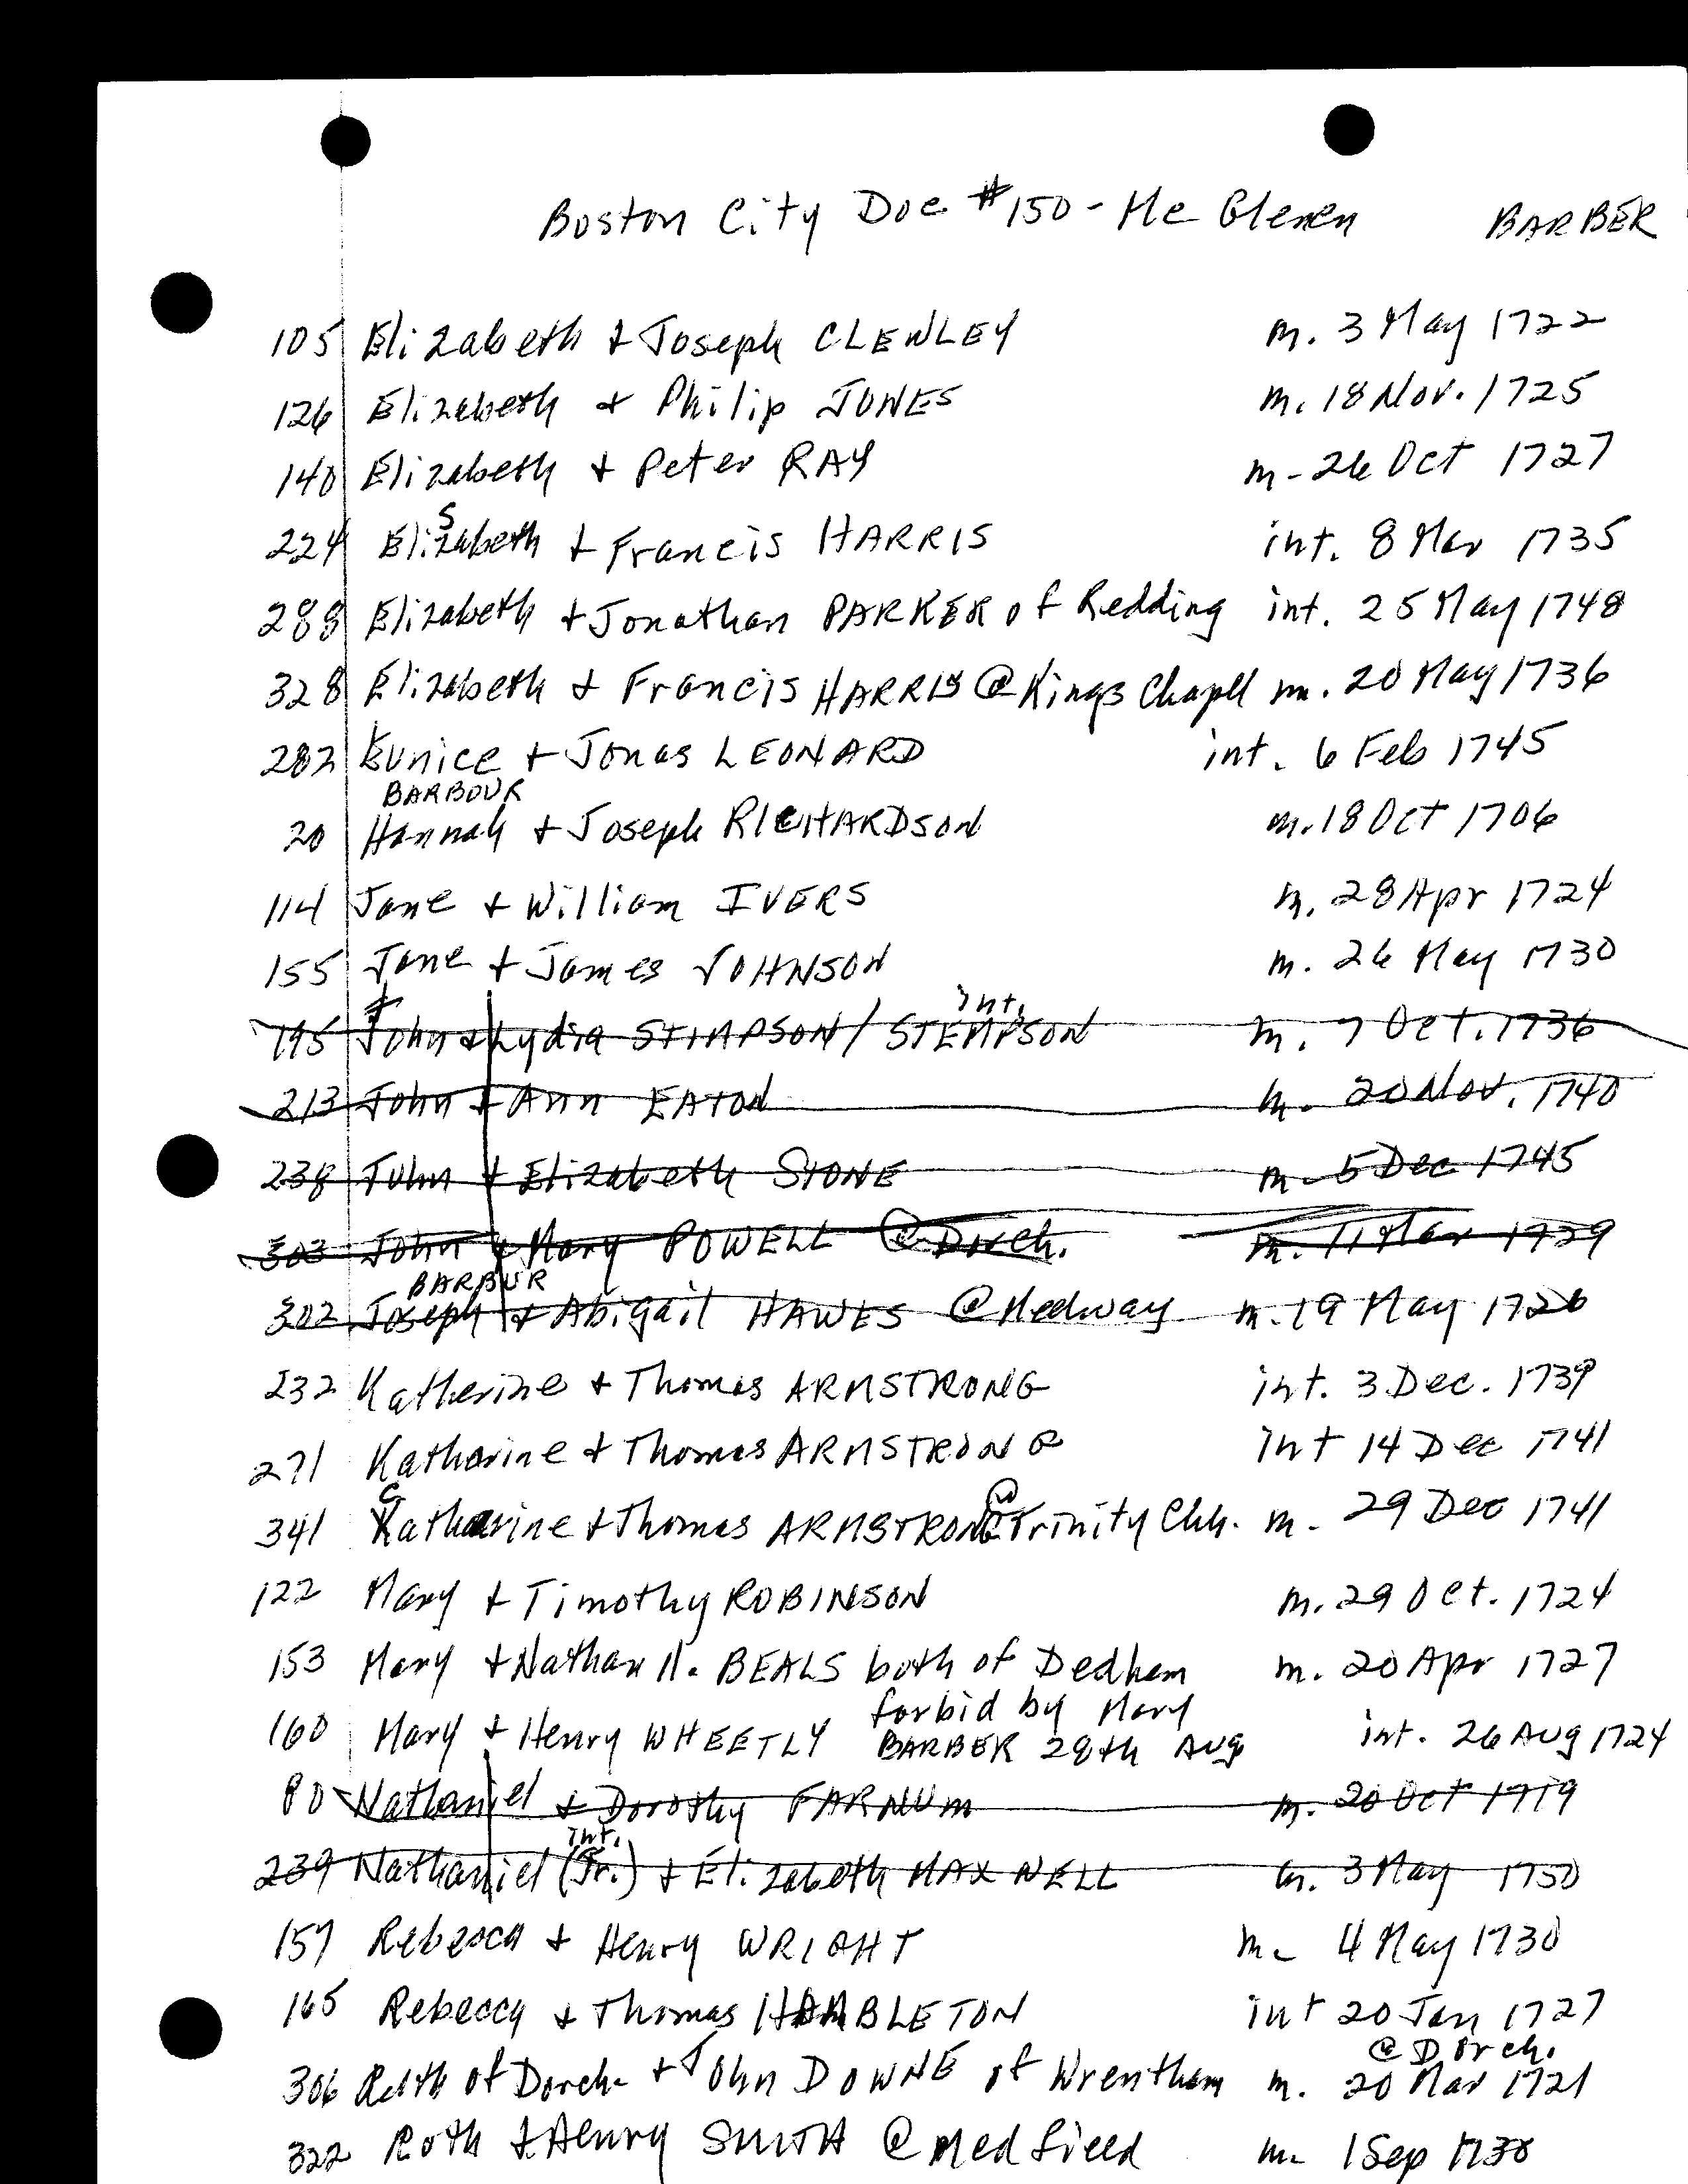 Boston City Doc #150 - Mc Glenen BARBER
105 Elizabeth & Joseph CLENLEY m. 3 May 1722
126 Elizabeth & Philip JONES m. 18 Nov. 1725
140 Elizabeth & Peter RAY m - 26 Oct 1727
S
224 Elizabeth & Francis HARRIS int. 8 Mar 1735
288 Elizabeth & Jonathan PARKER of Redding int. 25 May 1748
328 Elizabeth & Francis HARRIS @ Kings Chapll m. 20 May 1736
282 Eunice & Jonas LEONARD int. 6 Feb 1745
BARBOUR
20 Hannah & Joseph RICHARDSON m. 18 Oct 1706
114 Jane & William IVERS m. 28 Apr 1724
155 Jane & James JOHNSON m. 26 May 1730
int.
195 John & Lydia STIMPSON / STEMPSON m. 7 Oct. 1736
213 John & Ann EATON m. 20 Nov. 1740
238 John & Elizabeth STONE m - 5 Dec 1745
303 John & Mary POWELL @ Dorch. m. 11 Mar 1729
BARBUR
302 Joseph & Abigail HAWES @ Medway m. 19 May 1720
232 Katherine & Thomas ARMSTRONG int. 3 Dec. 1739
271 Katharine & Thomas ARMSTRONG int 14 Dec 1741
C @
341 Katharine & Thomas ARMSTRONG Trinity Chh. m. 29 Dec 1741
122 Mary & Timothy ROBINSON m. 29 Oct. 1724
153 Mary & Nathan ll. BEALS both of Dedham m. 20 Apr 1727
forbid by Mary
160 Mary & Henry WHEETLY BARBER 28th Aug int. 26 Aug 1724
80 Nathaniel & Dorothy FARNUM m. 20 Oct 1719
int.
239 Nathaniel (Jr.) & Elizabeth MAXWELL m. 3 May 1750
157 Rebecca & Henry WRIGHT m - 4 May 1730
165 Rebecca & Thomas HAMBLETON int 20 Jan 1727
@ Dorch.
306 Ruth of Dorch. & John DOWNE of Wrentham m. 20 Mar 1721
322 Ruth & Henry SMITH @ Medfield m. 1 Sep 1730